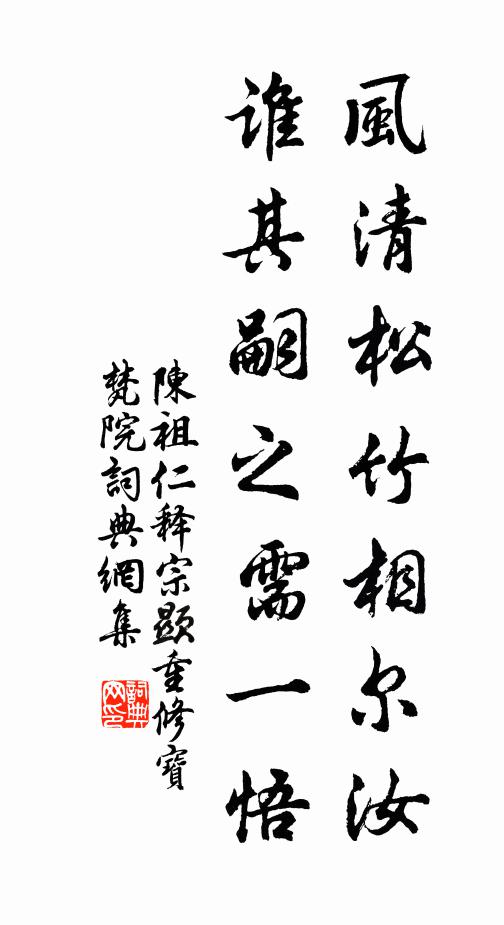 風清松竹相尔汝
誰其嗣之需一悟
陳祖仁释宗顯重修寶
梵院詞典網集
詞典
网印